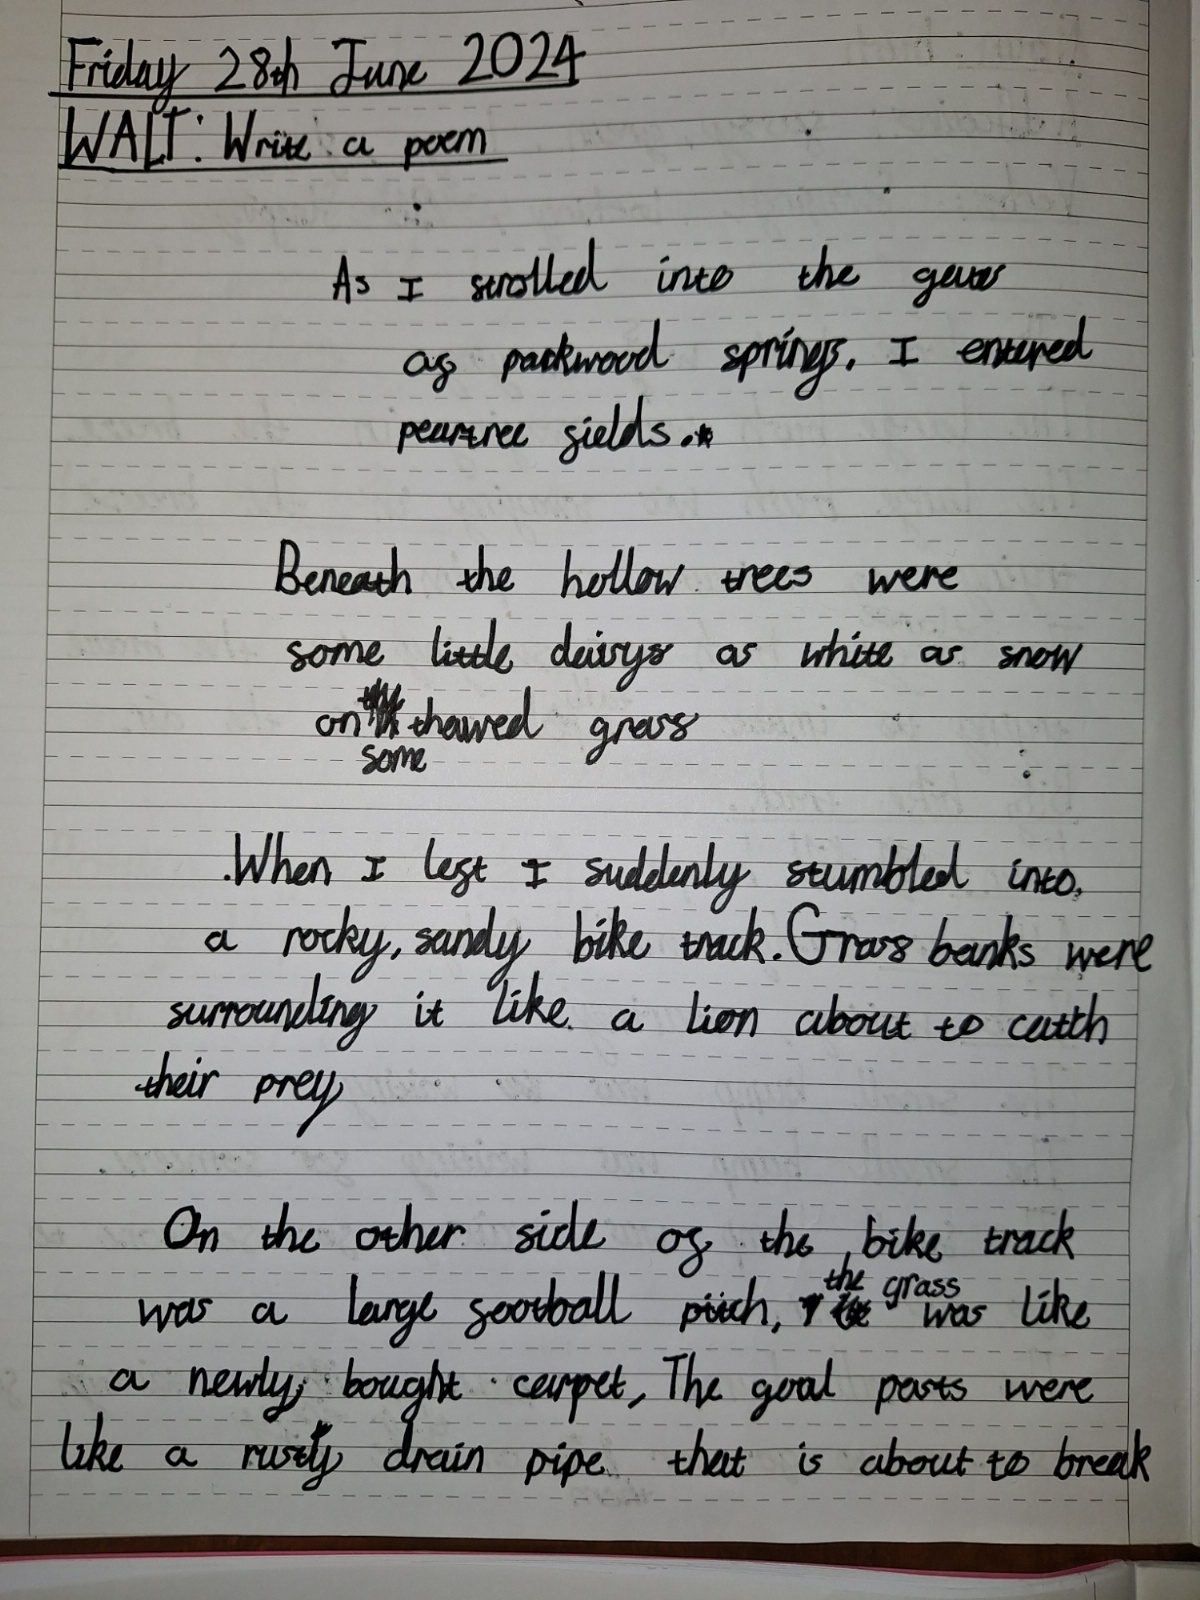 Friday 28th June 2024
WALT: Write a poem
As I strolled into the
of parkwood springs. I entered
peartree fields.
Beneath the hollow trees were
some little daisys as white as snow
on some thawed grass
When I left I suddenly stumbled into,
a rocky, sandy bike track. Grass banks were
surrounding it like a lion about to catch
their prey
On the other side of the bike track
was a large football pitch, the grass was like
a newly, bought carpet, The goal posts were
like a rusty drain pipe that is about to break